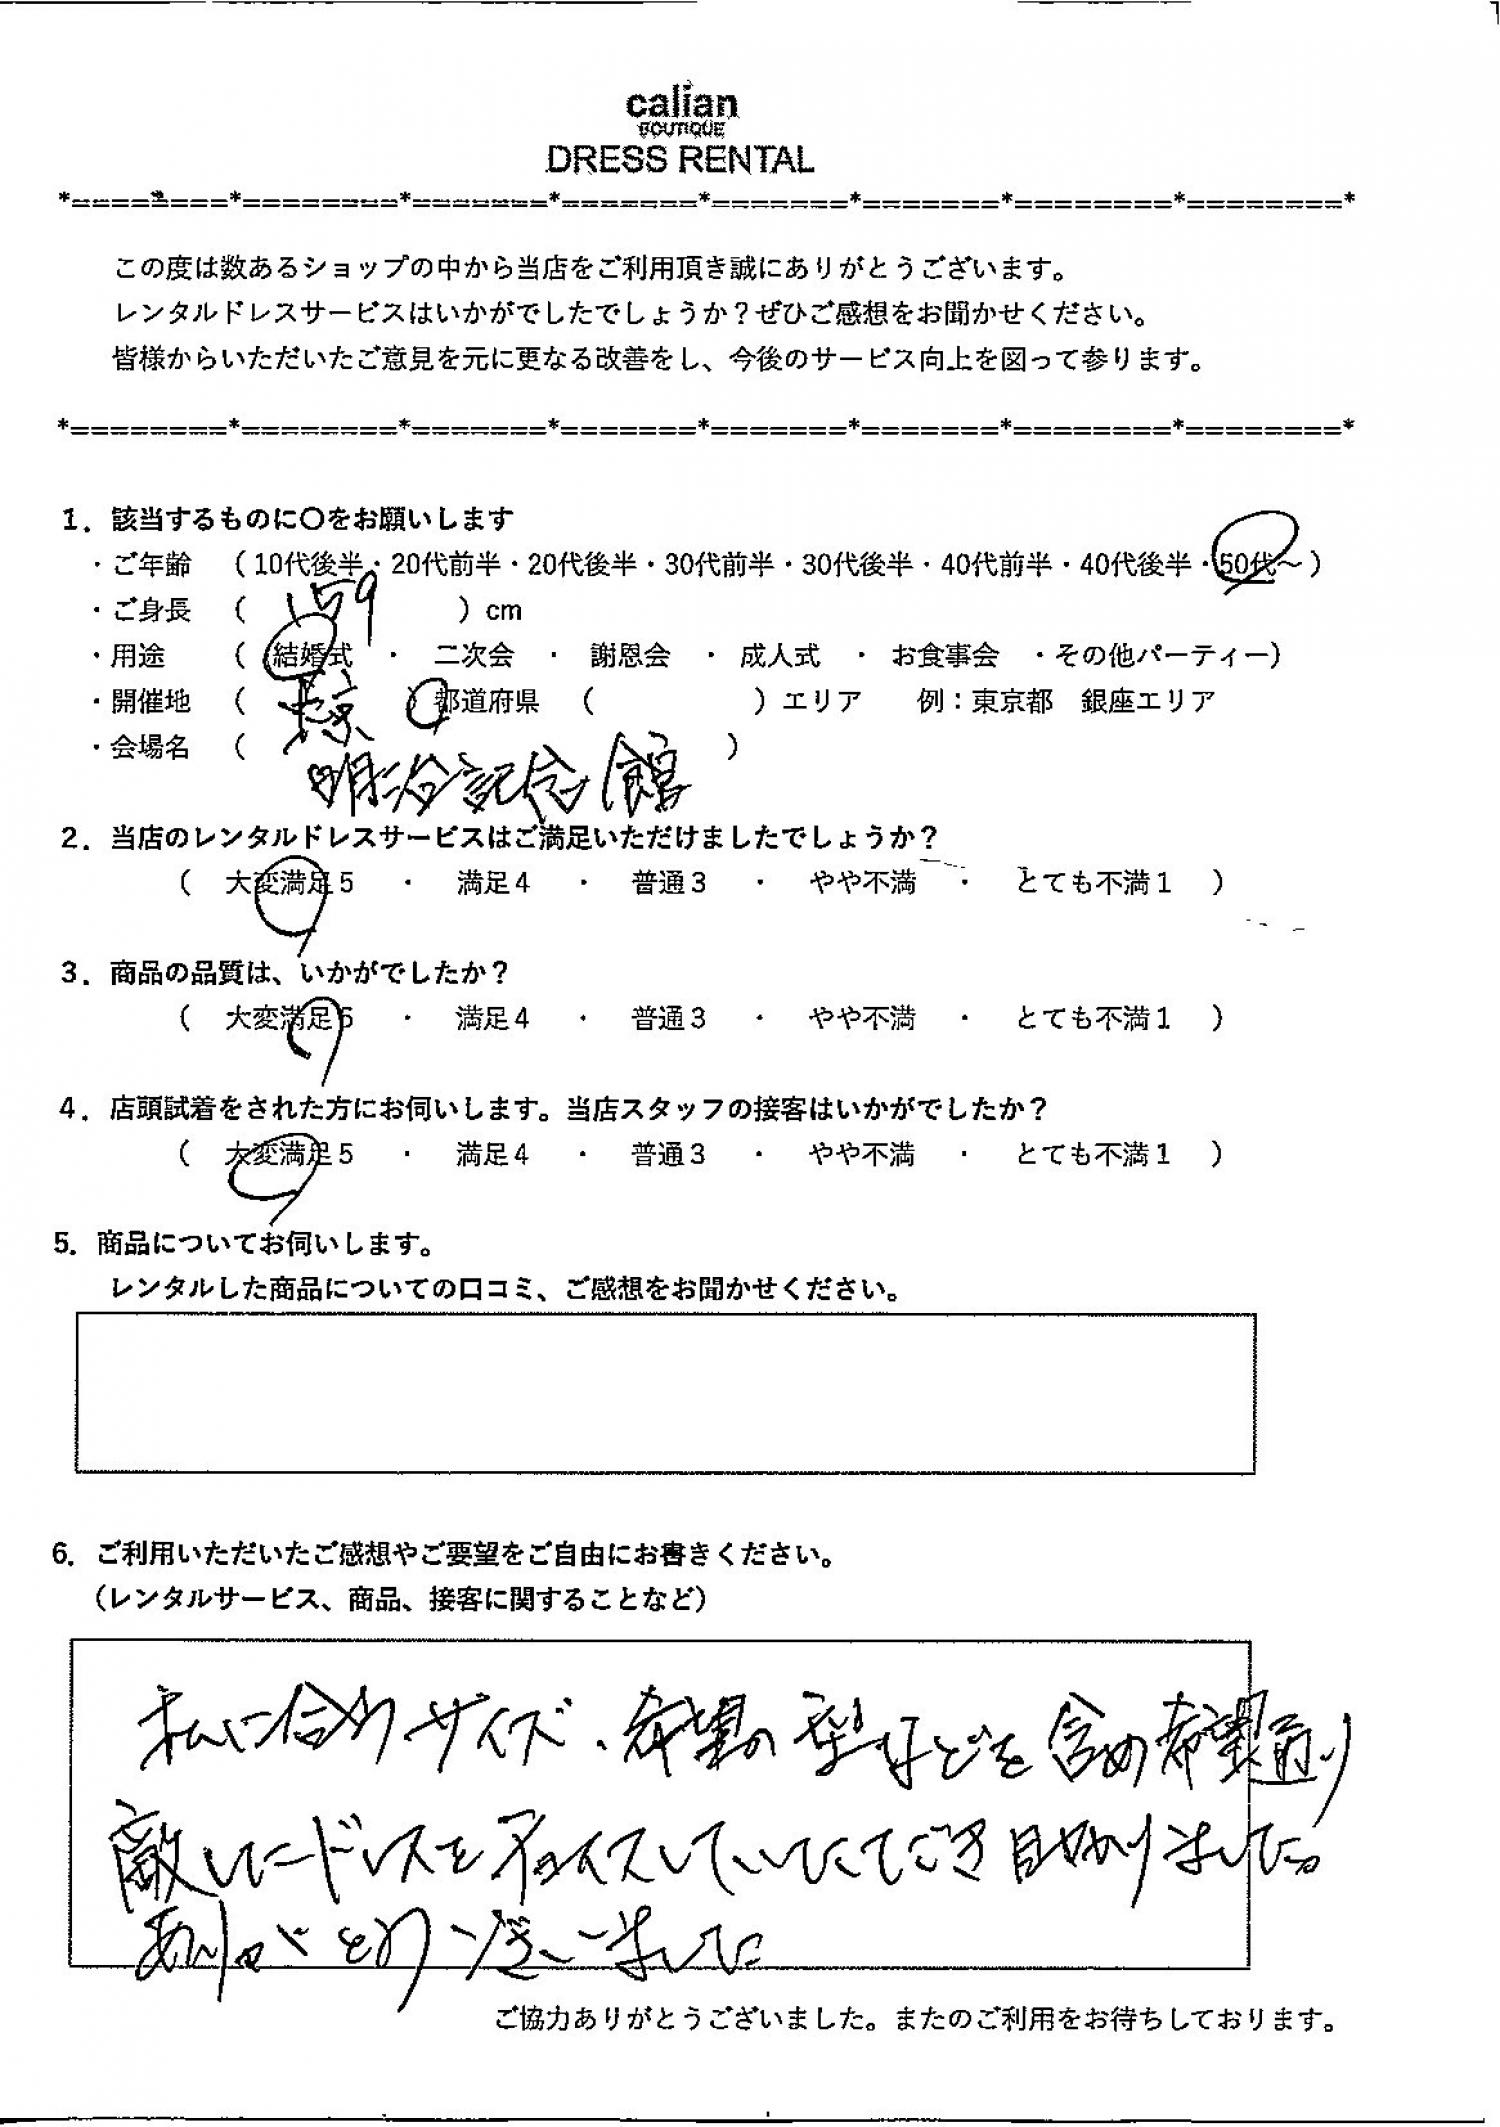 calian
BOUTIQUE
DRESS RENTAL
*========*========*=======*=======*=======*=======*========*========*
この度は数あるショップの中から当店をご利用頂き誠にありがとうございます。
レンタルドレスサービスはいかがでしたでしょうか？ぜひご感想をお聞かせください。
皆様からいただいたご意見を元に更なる改善をし、今後のサービス向上を図って参ります。
*========*========*=======*=======*=======*=======*========*========*
1．該当するものに〇をお願いします
・ご年齢 （10代後半・20代前半・20代後半・30代前半・30代後半・40代前半・40代後半・50代～）
・ご身長 （ 159 ）cm
・用途 （ 結婚式 ・ 二次会 ・ 謝恩会 ・ 成人式 ・ お食事会 ・その他パーティー）
・開催地 （ 東京 ）都道府県 （ ）エリア 例：東京都 銀座エリア
・会場名 （ 明治記念館 ）
2．当店のレンタルドレスサービスはご満足いただけましたでしょうか？
（ 大変満足5 ・ 満足4 ・ 普通3 ・ やや不満 ・ とても不満1 ）
3．商品の品質は、いかがでしたか？
（ 大変満足5 ・ 満足4 ・ 普通3 ・ やや不満 ・ とても不満1 ）
4．店頭試着をされた方にお伺いします。当店スタッフの接客はいかがでしたか？
（ 大変満足5 ・ 満足4 ・ 普通3 ・ やや不満 ・ とても不満1 ）
5．商品についてお伺いします。
レンタルした商品についての口コミ、ご感想をお聞かせください。
6．ご利用いただいたご感想やご要望をご自由にお書きください。
（レンタルサービス、商品、接客に関することなど）
私に合うサイズ、希望の型などを含め希望通り
敵したドレスをチョイスしていただき助かりました。
ありがとうございました
ご協力ありがとうございました。またのご利用をお待ちしております。